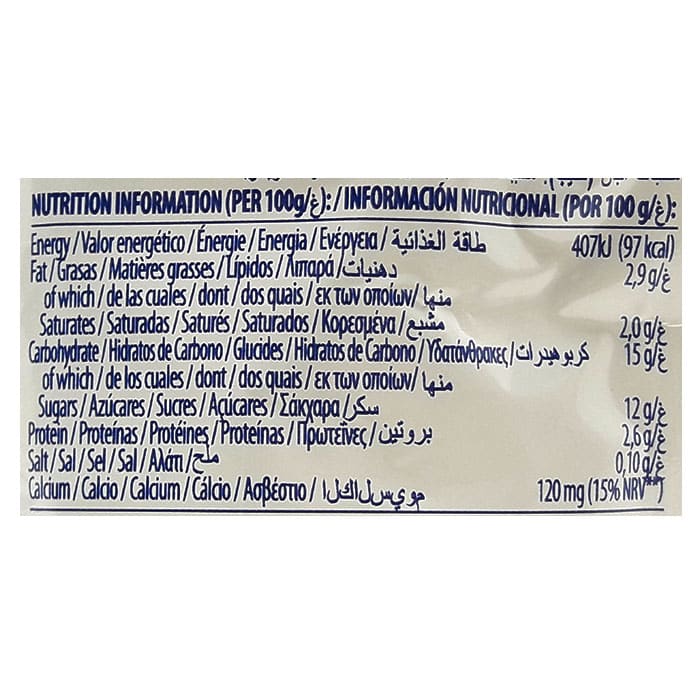 NUTRITION INFORMATION (PER 100g/غ): / INFORMACIÓN NUTRICIONAL (POR 100 g/غ):
Energy / Valor energético / Énergie / Energia / Ενέργεια / طاقة الغذائية 407kJ (97 kcal)
Fat / Grasas / Matières grasses / Lípidos / Λιπαρά / دهنيات 2,9 g/غ
of which / de las cuales / dont / dos quais / εκ των οποίων/ منها
Saturates / Saturadas / Saturés / Saturados / Κορεσμένα / مشبع 2,0 g/غ
Carbohydrate / Hidratos de Carbono / Glucides / Hidratos de Carbono / Υδατάνθρακες / كربوهيدرات 15 g/غ
of which / de los cuales / dont / dos quais / εκ των οποίων/ منها
Sugars / Azúcares / Sucres / Açúcares / Σάκχαρα / سكر 12 g/غ
Protein / Proteínas / Protéines / Proteínas / Πρωτεΐνες / بروتين 2,6 g/غ
Salt / Sal / Sel / Sal / Αλάτι / ملح 0,10 g/غ
Calcium / Calcio / Calcium / Cálcio / Ασβέστιο / ا ل ك ا ل س ي و م 120 mg (15% NRV**)